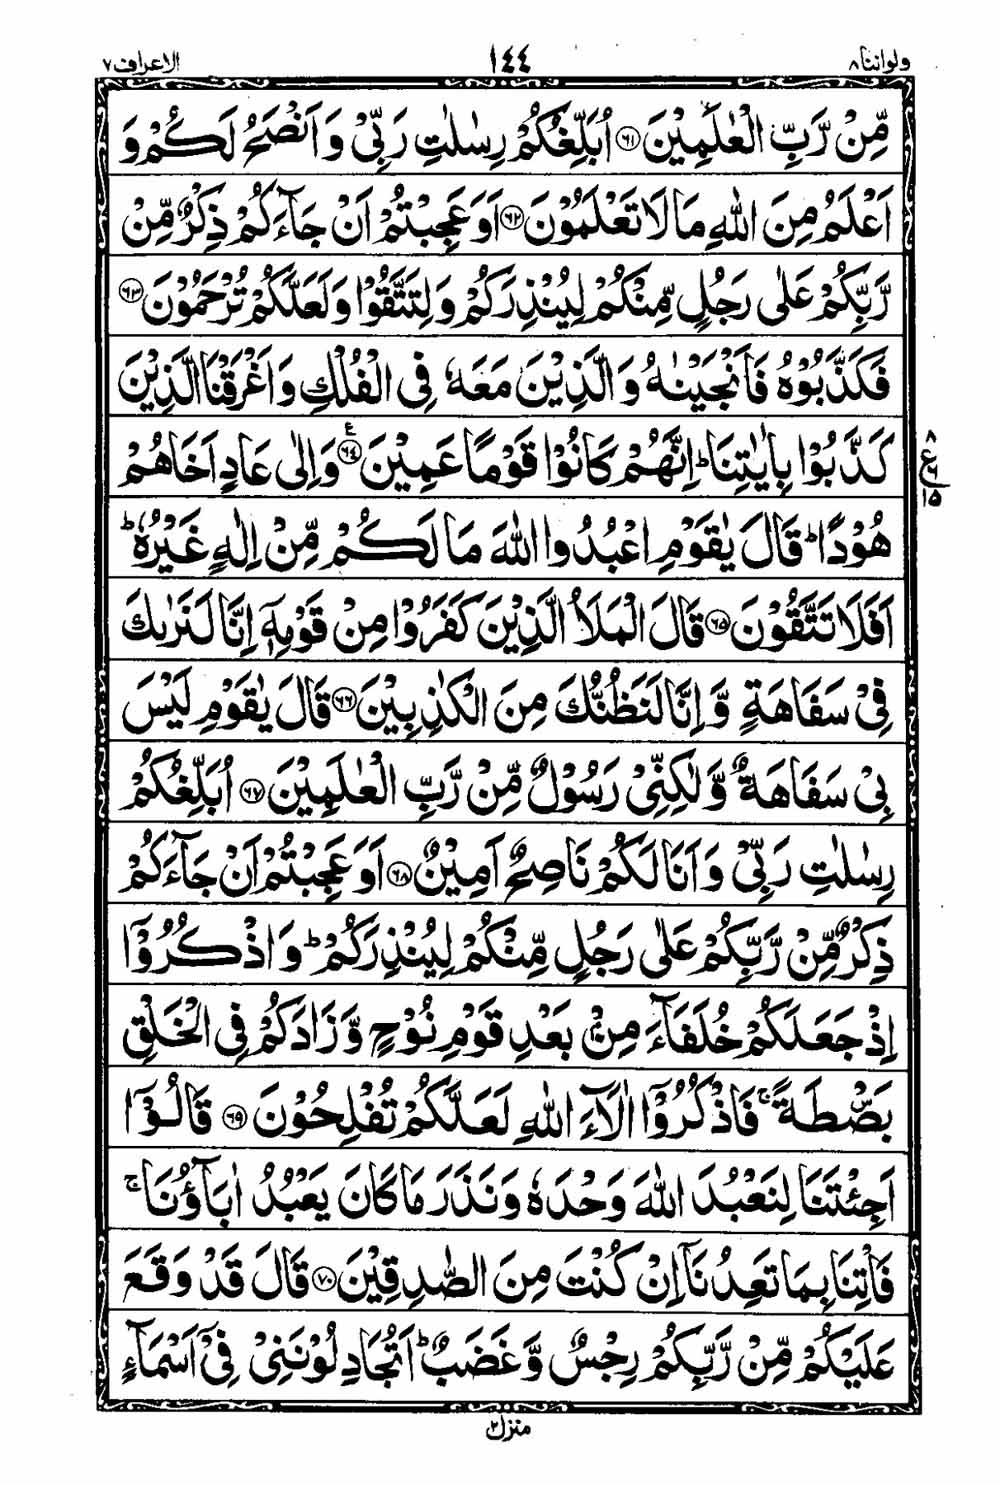 ولواننا ۸ ۱٤٤ الاعراف ۷
مِّنْ رَّبِّ الْعٰلَمِیْنَ ﴿۶۱﴾ اُبَلِّغُكُمْ رِسٰلٰتِ رَبِّیْ وَ اَنْصَحُ لَكُمْ وَ
اَعْلَمُ مِنَ اللّٰهِ مَا لَا تَعْلَمُوْنَ ﴿۶۲﴾ اَوَ عَجِبْتُمْ اَنْ جَآءَكُمْ ذِكْرٌ مِّنْ
رَّبِّكُمْ عَلٰی رَجُلٍ مِّنْكُمْ لِیُنْذِرَكُمْ وَ لِتَتَّقُوْا وَ لَعَلَّكُمْ تُرْحَمُوْنَ ﴿۶۳﴾
فَكَذَّبُوْهُ فَاَنْجَیْنٰهُ وَ الَّذِیْنَ مَعَهٗ فِی الْفُلْكِ وَ اَغْرَقْنَا الَّذِیْنَ
كَذَّبُوْا بِاٰیٰتِنَا ؕ اِنَّهُمْ كَانُوْا قَوْمًا عَمِیْنَ ﴿۶٤﴾ ع وَ اِلٰی عَادٍ اَخَاهُمْ
۸ ع ۱۵
هُوْدًا ؕ قَالَ یٰقَوْمِ اعْبُدُوا اللّٰهَ مَا لَكُمْ مِّنْ اِلٰهٍ غَیْرُهٗ ؕ
اَفَلَا تَتَّقُوْنَ ﴿۶۵﴾ قَالَ الْمَلَاُ الَّذِیْنَ كَفَرُوْا مِنْ قَوْمِهٖۤ اِنَّا لَنَرٰىكَ
فِیْ سَفَاهَةٍ وَّ اِنَّا لَنَظُنُّكَ مِنَ الْكٰذِبِیْنَ ﴿۶۶﴾ قَالَ یٰقَوْمِ لَیْسَ
بِیْ سَفَاهَةٌ وَّ لٰكِنِّیْ رَسُوْلٌ مِّنْ رَّبِّ الْعٰلَمِیْنَ ﴿۶۷﴾ اُبَلِّغُكُمْ
رِسٰلٰتِ رَبِّیْ وَ اَنَا لَكُمْ نَاصِحٌ اَمِیْنٌ ﴿۶۸﴾ اَوَ عَجِبْتُمْ اَنْ جَآءَكُمْ
ذِكْرٌ مِّنْ رَّبِّكُمْ عَلٰی رَجُلٍ مِّنْكُمْ لِیُنْذِرَكُمْ ؕ وَ اذْكُرُوْۤا
اِذْ جَعَلَكُمْ خُلَفَآءَ مِنْۢ بَعْدِ قَوْمِ نُوْحٍ وَّ زَادَكُمْ فِی الْخَلْقِ
بَصْۜطَةً ۚ فَاذْكُرُوْۤا اٰلَآءَ اللّٰهِ لَعَلَّكُمْ تُفْلِحُوْنَ ﴿۶۹﴾ قَالُوْۤا
اَجِئْتَنَا لِنَعْبُدَ اللّٰهَ وَحْدَهٗ وَ نَذَرَ مَا كَانَ یَعْبُدُ اٰبَآؤُنَا ۚ
فَاْتِنَا بِمَا تَعِدُنَاۤ اِنْ كُنْتَ مِنَ الصّٰدِقِیْنَ ﴿۷۰﴾ قَالَ قَدْ وَقَعَ
عَلَیْكُمْ مِّنْ رَّبِّكُمْ رِجْسٌ وَّ غَضَبٌ ؕ اَتُجَادِلُوْنَنِیْ فِیْۤ اَسْمَآءٍ
منزل ۲